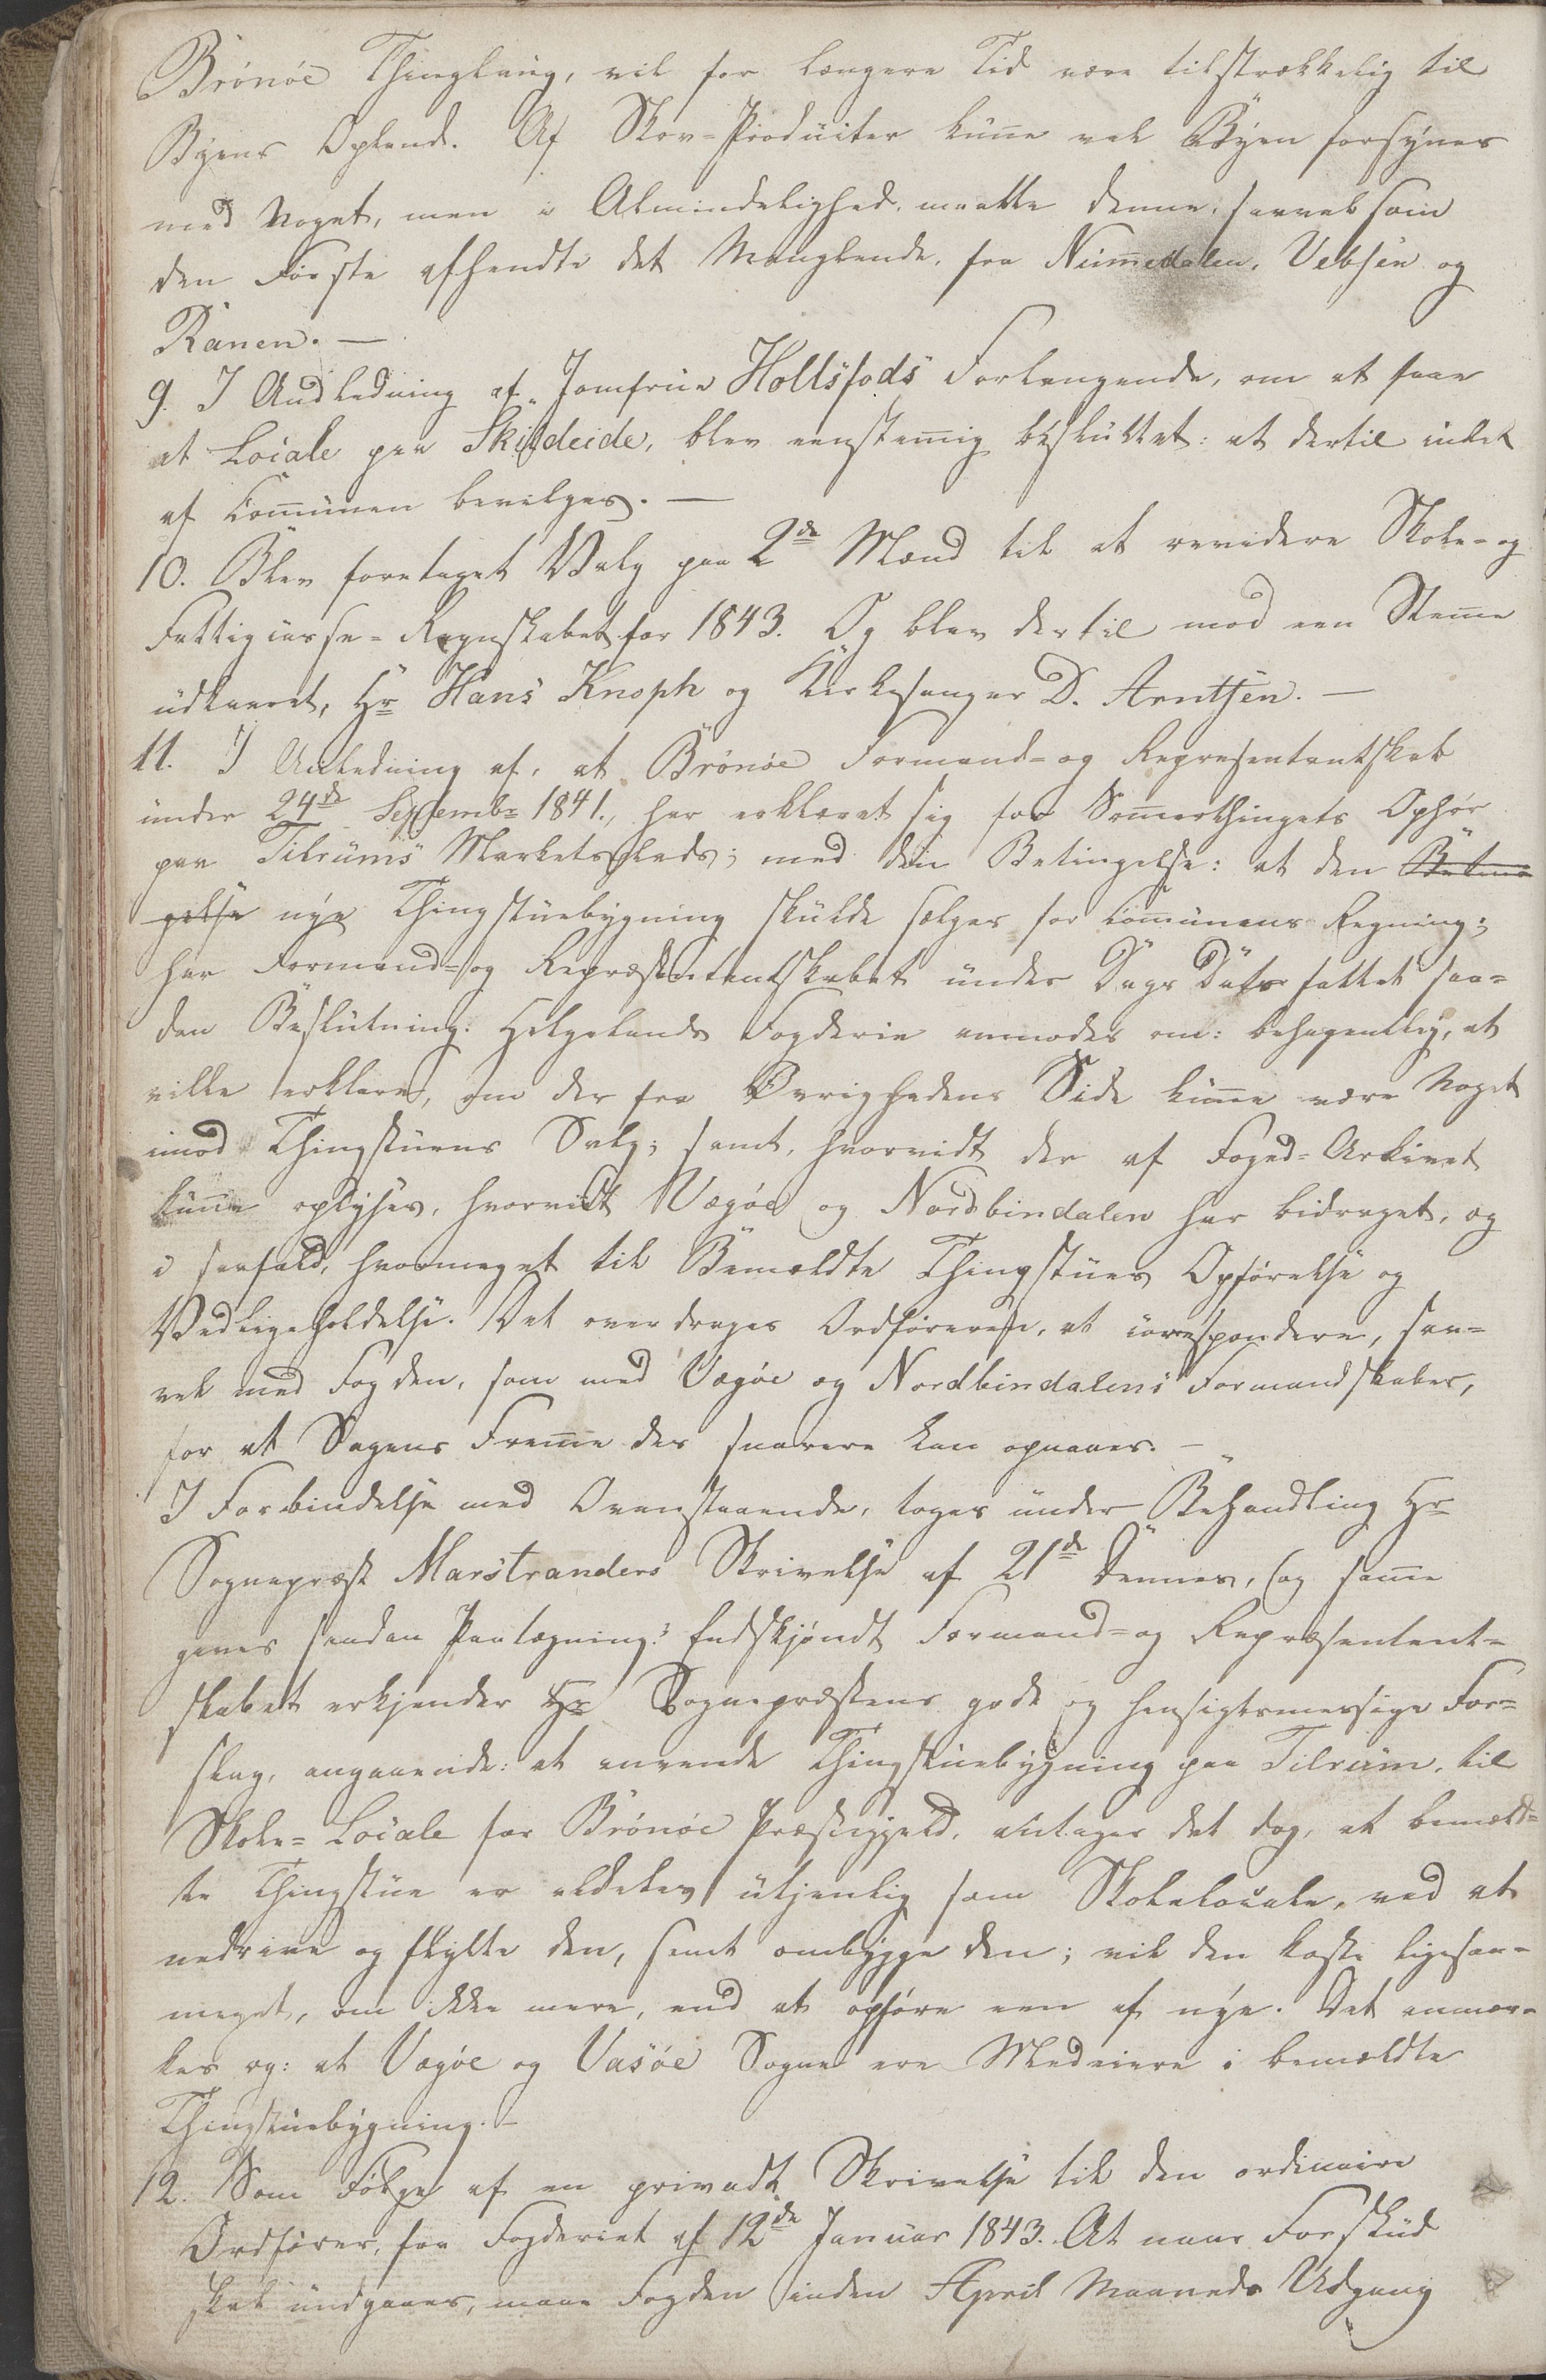 Brønøe Thinglaug, vil for længere Tid være tilstrækkelig til
Byens Opland. Af Skov-Producter kunne vel Byen forsynes
med Noget, men i Almindelighed, maatte denne, saavelsom
den Første afhendte det Manglende, fra Nummedalen, Vebsen og
Ranen. —
9. I Andledning af, Jomfrue Hollsfods Forlangende, om at faae
et Locale paa Skildeide, blev eenstemig besluttet: at dertil intet
af Communen bevilges. —
10. Blev foretaget Valg paa 2de Mænd til at revidere Skole- og
Fattigcasse-Regnskabet for 1843. Og blev dertil mod een Stemme
udkaaret, Hr Hans Knoph og Kirkesanger D. Arntsen. —
11. I Anledning af, at Brønøe Formand- og Representantskab
under 24de Septembr 1841., har erklæret sig for Sommerthingets Ophør
paa Tilrums Markedsplads; med den Betingelse: at den Betin-
gelse nye Thingstuebygning skulde sælges for Communens Regning;
har Formand- og Repræsentantskabet under Dags Dato fattet saa-
dan Beslutning: Helgelands Fogderie anmodes om: behagentlig, at
ville erklære, om der fra Øvrighedens Side kunne være Noget
imod Thingstuens Salg; samt, hvorvidt der af Foged-Arkivet
kunne oplyses, hvorvidt Vegøe og Nordbindalen har bidraget, og
i saafald, hvormeget til Bemeldte Thingstues Opførelse og
Vedligeholdelse. Det overdrages Ordføreren, at corespondere, saa-
vel med Fogden, som med Vegøe og Nordbindalens Formandskaber,
for at Sagens Fremme des snarere kan opnaaes. —
I Forbindelse med Ovenstaaende, toges under Behandling Hr
Sognepræst Marstranders Skrivelse af 21de Dennes, og samme
gives saadan Paategning: Endskjøndt Formand- og Repræsentant-
skabet erkjender Hr Sognepræstens gode og hensigtsmessige For-
slag, angaaende: at anvende Thingstuebygning paa Tilrum, til
Skole-Locale for Brønøe Præstegjeld, antages det dog, at bemeld-
te Thingstue er aldeles utjenlig som Skolelocale, ved at
nedrive og flytte den, samt ombygge den; vil den koste ligesaa-
meget, om ikke mere, end at opføre een af nye. Det anmær-
kes og: at Vegøe og Vasøe Sogne ere Medeiere i bemeldte
Thingstuebygning. —
12. Som Følge af en privadt Skrivelse til den ordinaire
Ordfører, fra Fogderiet af 12de Januar 1843. At naar Forskud
skal undgaaes, maae Fogden inden April Maaneds Udgang